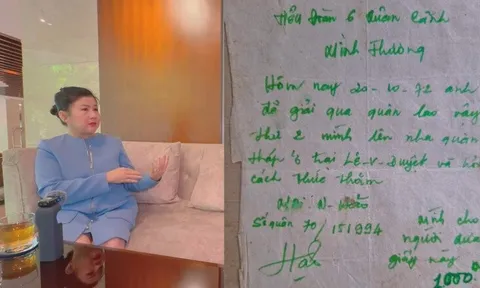 Tiểu Đoàn 6 Quân Cảnh
Mình Thương
Hôm nay 20-10-72 anh
đã giải qua quân lao vậy
thứ 2 mình lên nha quân
Pháp 6 trại Lê-V-Duyệt và hỏi
cách thức thăm
Số quân 70/151994 mình cho
người đưa
giấy nay
1000đ